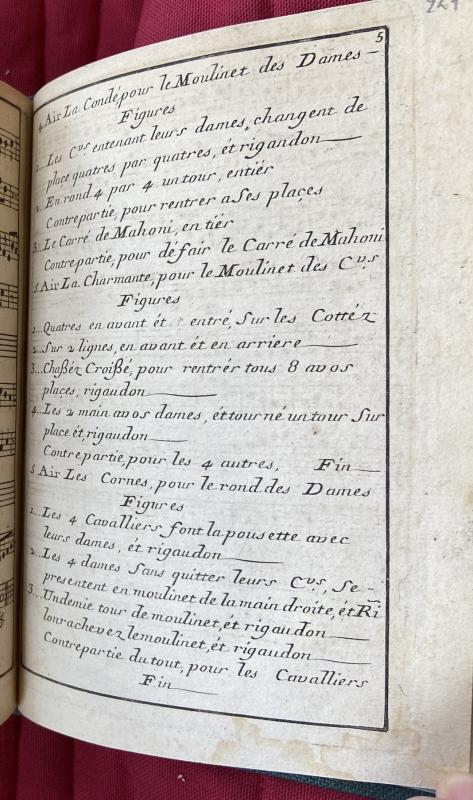 5
4 Air La Condé, pour le Moulinet des Dames
Figures
1... Les C.vs entenant leurs dames, changent de
place quatres par quatres, ét rigaudon
2. En rond 4 par 4 un tour, entiér
Contrepartie, pour rentrer a Ses plaçes
3... Le Carré de Mahoni, en tiér
Contrepartie, pour défair le Carré de Mahoni
5 Air La Charmante, pour le Moulinet des C.vs
Figures
1... Quatres en avant ét entré, Sur les Cottéz
2... Sur 2 lignes, en avant ét en arriere
3... Chaßéz Croißé, pour rentrér tous 8 avos
places, rigaudon
4... Les 2 main avos dames, ét tourné un tour Sur
place ét, rigaudon
Contrepartie, pour les 4 autres, Fin
5 Air Les Cornes, pour le rond des Dames
Figures
1... Les 4 Cavalliers font la pousette avec
leurs dames, ét rigaudon
2... Les 4 dames Sans quitter leurs C.vs, Se
presentent en moulinet de la main droite, ét Ri
3... Un demie tour de moulinet, ét rigaudon
lon rachevez le moulinet, ét rigaudon
Contrepartie du tout, pour les Cavalliers
Fin